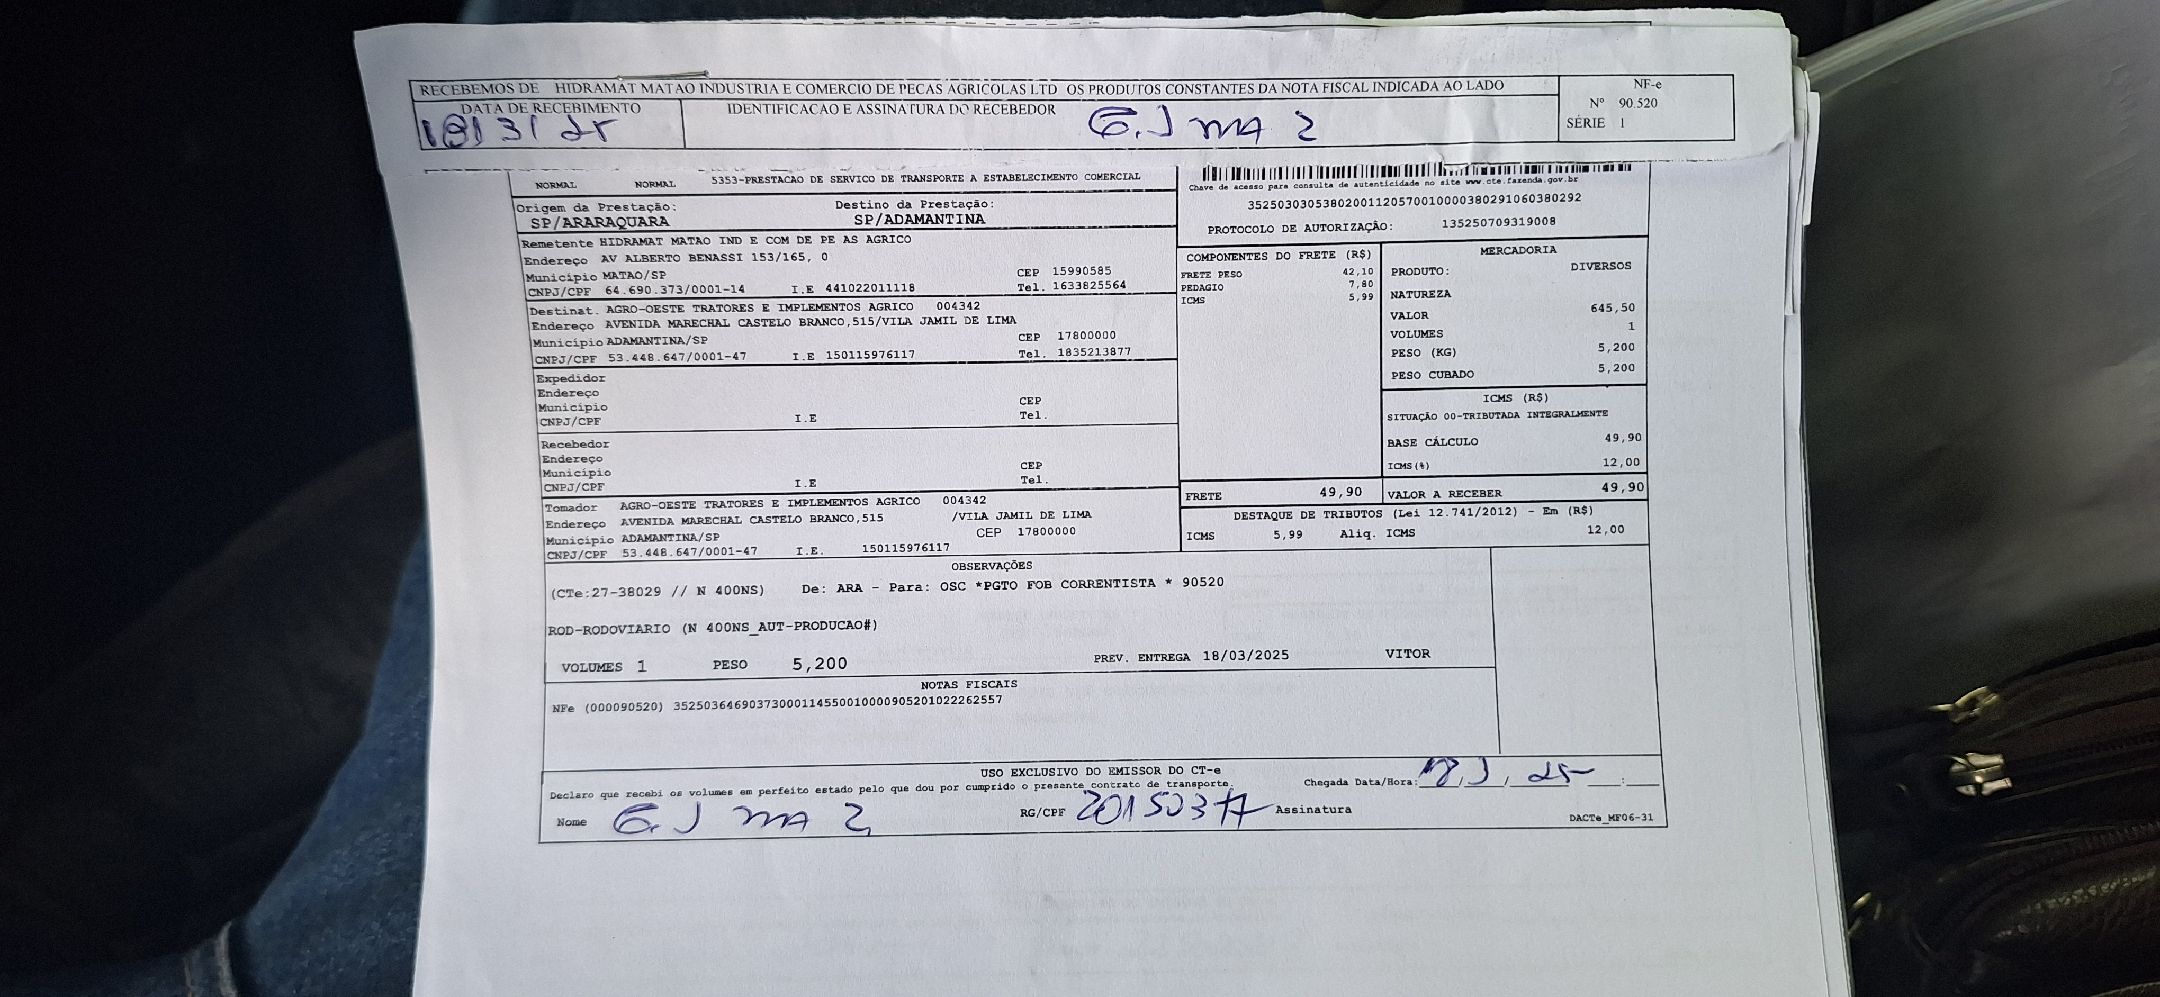 RECEBEMOS DE HIDRAMAT MATAO INDUSTRIA E COMERCIO DE PECAS AGRICOLAS LTD OS PRODUTOS CONSTANTES DA NOTA FISCAL INDICADA AO LADO
NF-e
Nº 90.520
SÉRIE 1
DATA DE RECEBIMENTO
IDENTIFICACAO E ASSINATURA DO RECEBEDOR
18/3/25
NORMAL NORMAL 5353-PRESTACAO DE SERVICO DE TRANSPORTE A ESTABELECIMENTO COMERCIAL
Chave de acesso para consulta de autenticidade no site www.cte.fazenda.gov.br
35250303053802001120570010000380291060380292
PROTOCOLO DE AUTORIZAÇÃO: 135250709319008
Origem da Prestação: Destino da Prestação:
SP/ARARAQUARA SP/ADAMANTINA
Remetente HIDRAMAT MATAO IND E COM DE PE AS AGRICO
Endereço AV ALBERTO BENASSI 153/165, 0
Município MATAO/SP CEP 15990585
CNPJ/CPF 64.690.373/0001-14 I.E 441022011118 Tel. 1633825564
Destinat. AGRO-OESTE TRATORES E IMPLEMENTOS AGRICO 004342
Endereço AVENIDA MARECHAL CASTELO BRANCO,515/VILA JAMIL DE LIMA
Município ADAMANTINA/SP CEP 17800000
CNPJ/CPF 53.448.647/0001-47 I.E 150115976117 Tel. 1835213877
Expedidor
Endereço
Município CEP
CNPJ/CPF I.E Tel.
Recebedor
Endereço
Município CEP
CNPJ/CPF I.E Tel.
Tomador AGRO-OESTE TRATORES E IMPLEMENTOS AGRICO 004342
Endereço AVENIDA MARECHAL CASTELO BRANCO,515 /VILA JAMIL DE LIMA
Município ADAMANTINA/SP CEP 17800000
CNPJ/CPF 53.448.647/0001-47 I.E. 150115976117
COMPONENTES DO FRETE (R$)
FRETE PESO 42,10
PEDAGIO 7,80
ICMS 5,99
FRETE 49,90
MERCADORIA
PRODUTO: DIVERSOS
NATUREZA
VALOR 645,50
VOLUMES 1
PESO (KG) 5,200
PESO CUBADO 5,200
ICMS (R$)
SITUAÇÃO 00-TRIBUTADA INTEGRALMENTE
BASE CÁLCULO 49,90
ICMS(%) 12,00
VALOR A RECEBER 49,90
DESTAQUE DE TRIBUTOS (Lei 12.741/2012) - Em (R$)
ICMS 5,99 Aliq. ICMS 12,00
OBSERVAÇÕES
(CTe:27-38029 // N 400NS) De: ARA - Para: OSC *PGTO FOB CORRENTISTA * 90520
ROD-RODOVIARIO (N 400NS_AUT-PRODUCAO#)
VOLUMES 1 PESO 5,200 PREV. ENTREGA 18/03/2025 VITOR
NOTAS FISCAIS
NFe (000090520) 35250364690373000114550010000905201022262557
USO EXCLUSIVO DO EMISSOR DO CT-e
Declaro que recebi os volumes em perfeito estado pelo que dou por cumprido o presente contrato de transporte.
Chegada Data/Hora:
Nome RG/CPF Assinatura
DACTe_MF06-31